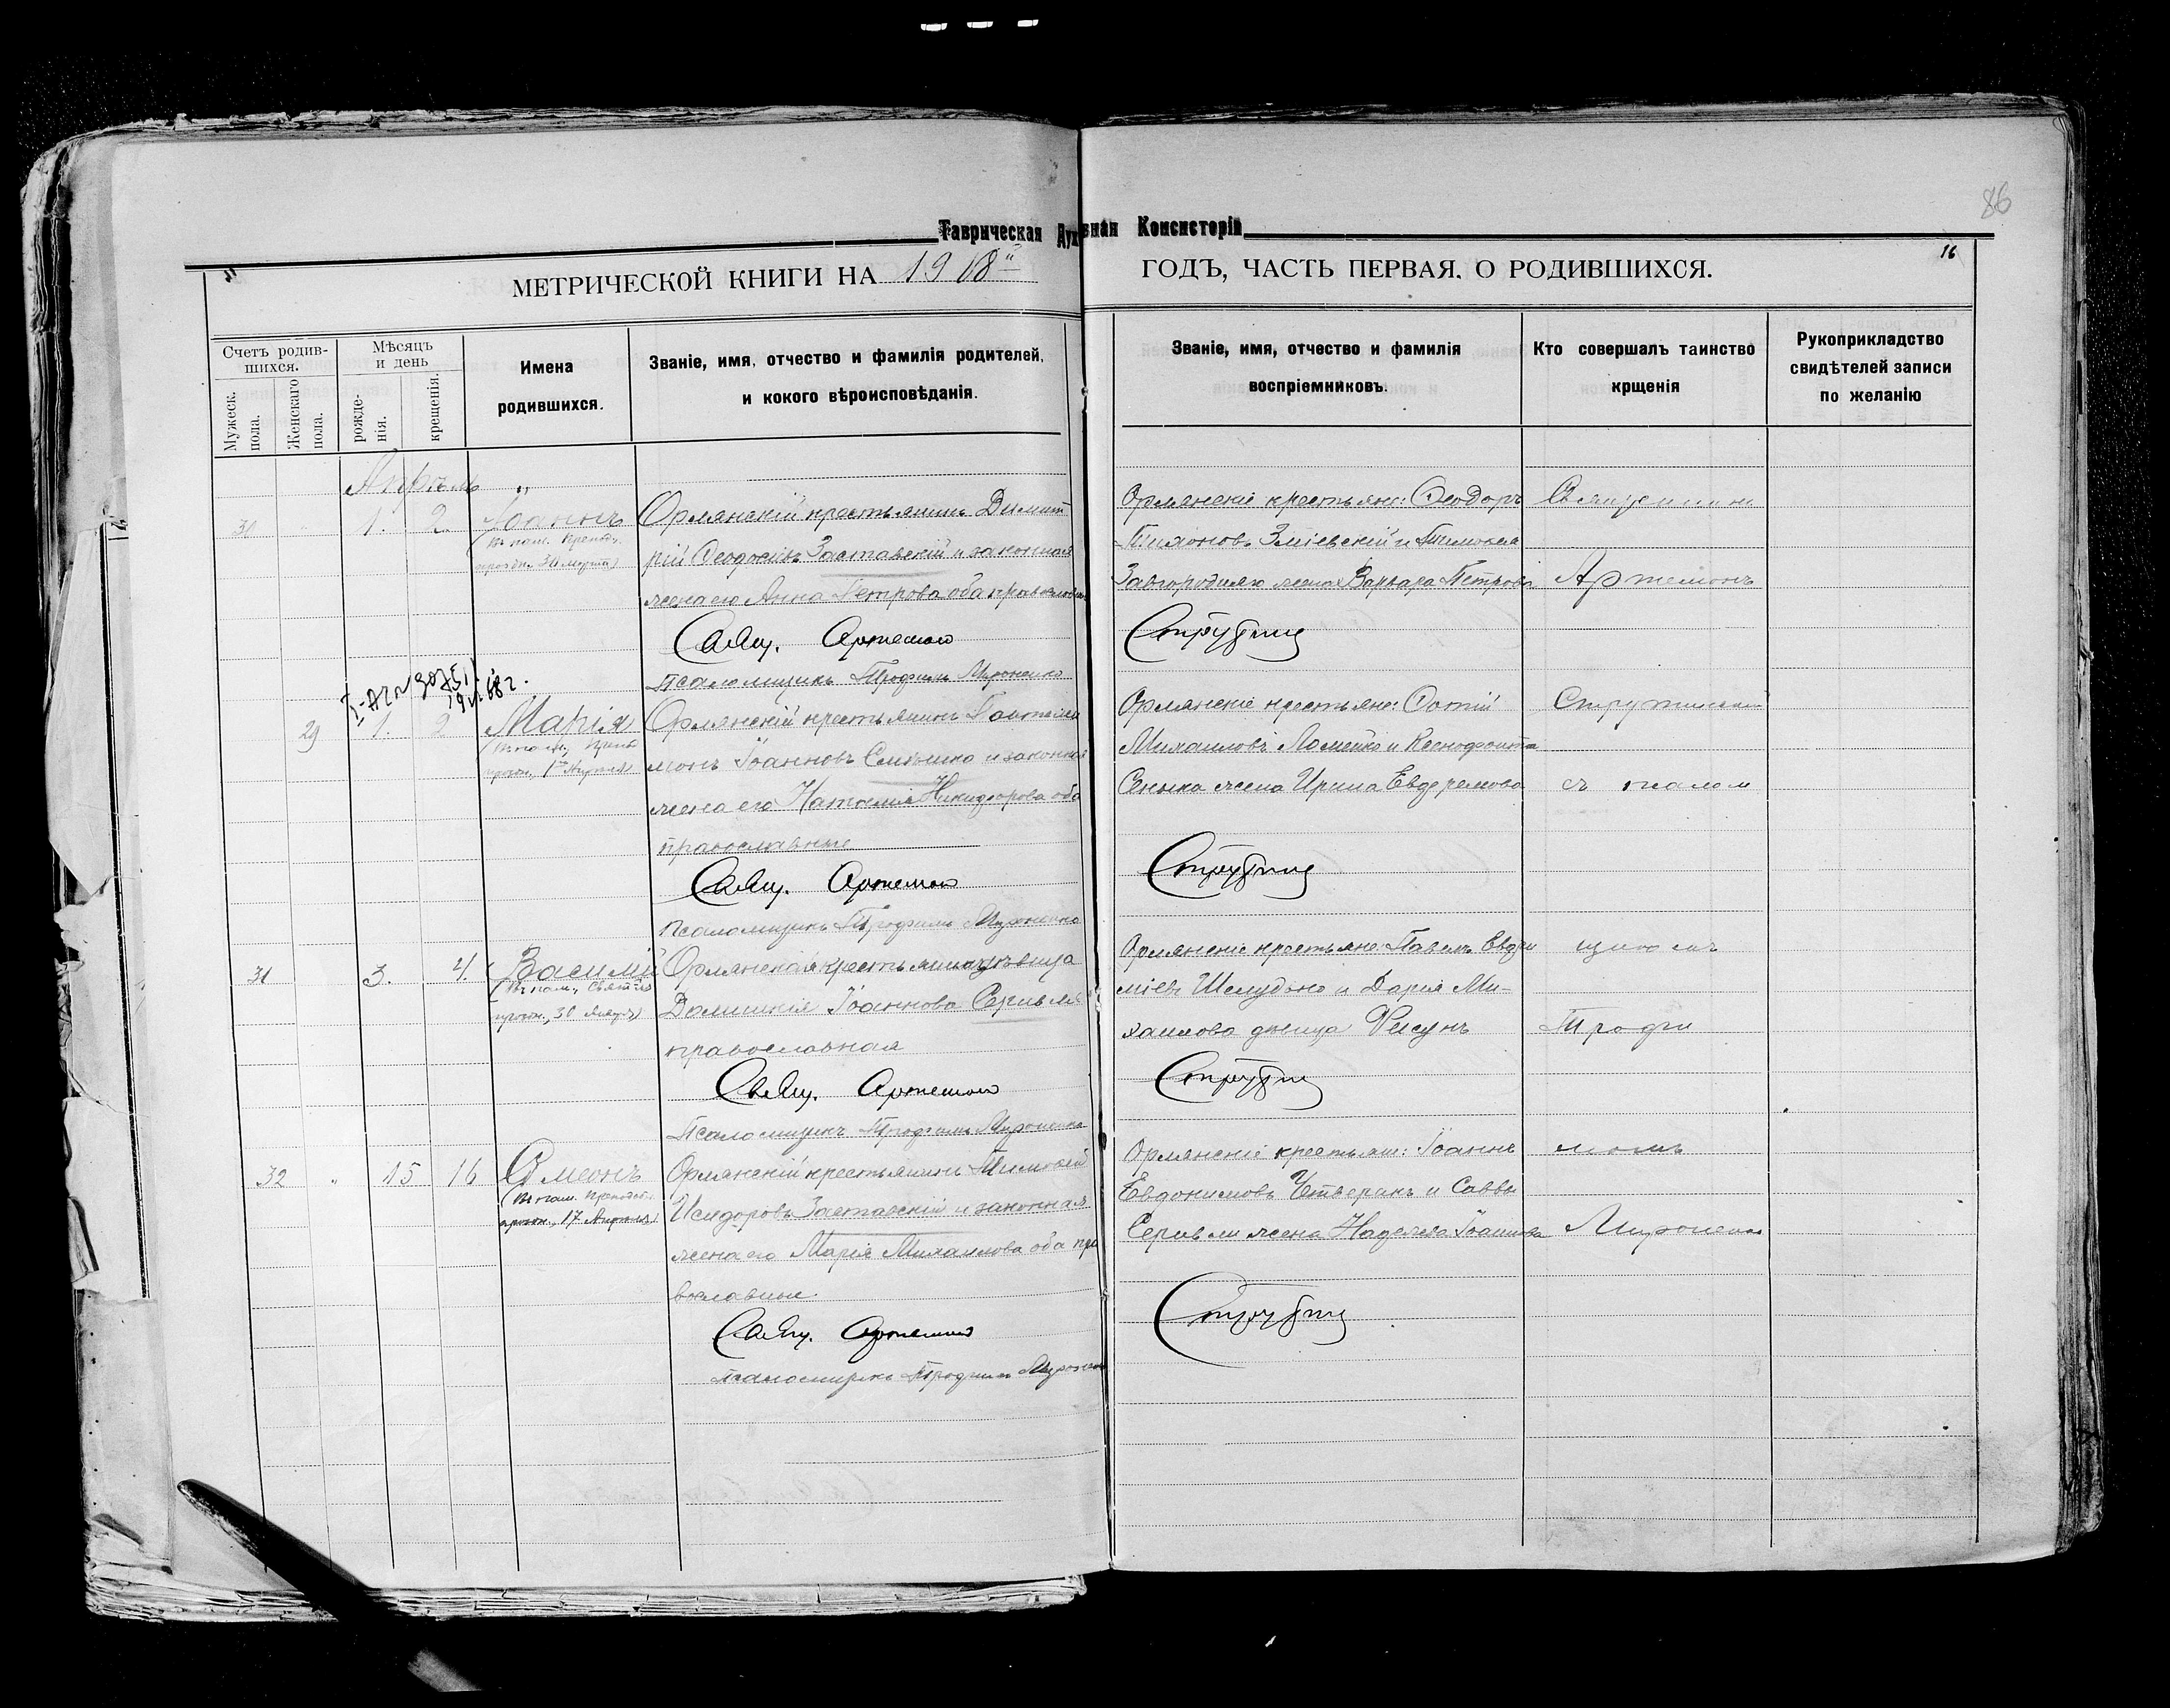 86
Таврическая Духовная Консисторія
16
МЕТРИЧЕСКОЙ КНИГИ НА 1918й ГОДЪ, ЧАСТЬ ПЕРВАЯ. О РОДИВШИХСЯ.
Счетъ родив-
шихся.
Мужеск.
пола.
Женскаго
пола.
Мѣсяцъ
и день
рожде-
нія.
крещенія.
Имена
родившихся.
Званіе, имя, отчество и фамилія родителей,
и кокого вѣроисповѣданія.
Званіе, имя, отчество и фамилія
воспріемниковъ.
Кто совершалъ таинство
крщенія
Рукоприкладство
свидѣтелей записи
по желанію
Апрѣль
30 1. 2. Іоаннъ
(въ пам. Препод.
праздн. 30 марта)
Орлянскій крестьянинъ Димит
рій Заставскій и законная
жена его Анна Петрова оба православные
Свящ. Артемон
Псаломщикъ Трофимъ Мироненко
Орлянскіе крестьяне: Ѳеодоръ
Тихоновъ Зміевскій и Тимоѳея
жена Варвара Петрова
Струтинс
Священник
Артемонъ
29 1. 2 Марія
1го Апрѣля)
Орлянскій крестьянинъ Пантелеи
монъ Іоанновъ и законная
жена его Наталія Никифорова оба
православные
Свящ. Артемон
Псаломщикъ Трофимъ Мироненко
Орлянскіе крестьяне: Фотій
Михаиловъ Ломейко и Ксенофонта
жена Ирина Евфремова
Струтинс
Струтинскій
съ псалом
31 3. 4. Василій
(въ пам. Святит.
праздн. 30
Орлянская крестьянка дѣвица
Домникія Іоаннова
православная
Свящ. Артемон
Псаломщикъ Трофимъ Мироненко
Орлянскіе крестьяне: Павелъ Евфи
міевъ Шелудько и Дарія Ми-
хаилова дѣвица
Струтин
щикомъ
Трофи
32 15 16 Симеонъ
(въ пам. Преподоб.
праздн. 17 Апрѣля)
Орлянскій крестьянинъ Тимоѳей
Исидоровъ Заставскій и законная
жена его Марія Михаилова оба пра
вославные.
Свящ. Артемон
Псаломщикъ Трофимъ Мироненко
Орлянскіе крестьян: Іоаннъ
Евдокимовъ Четверикъ и Саввы
жена Надежда Іоаннова
Струтин
момъ
Мироненко